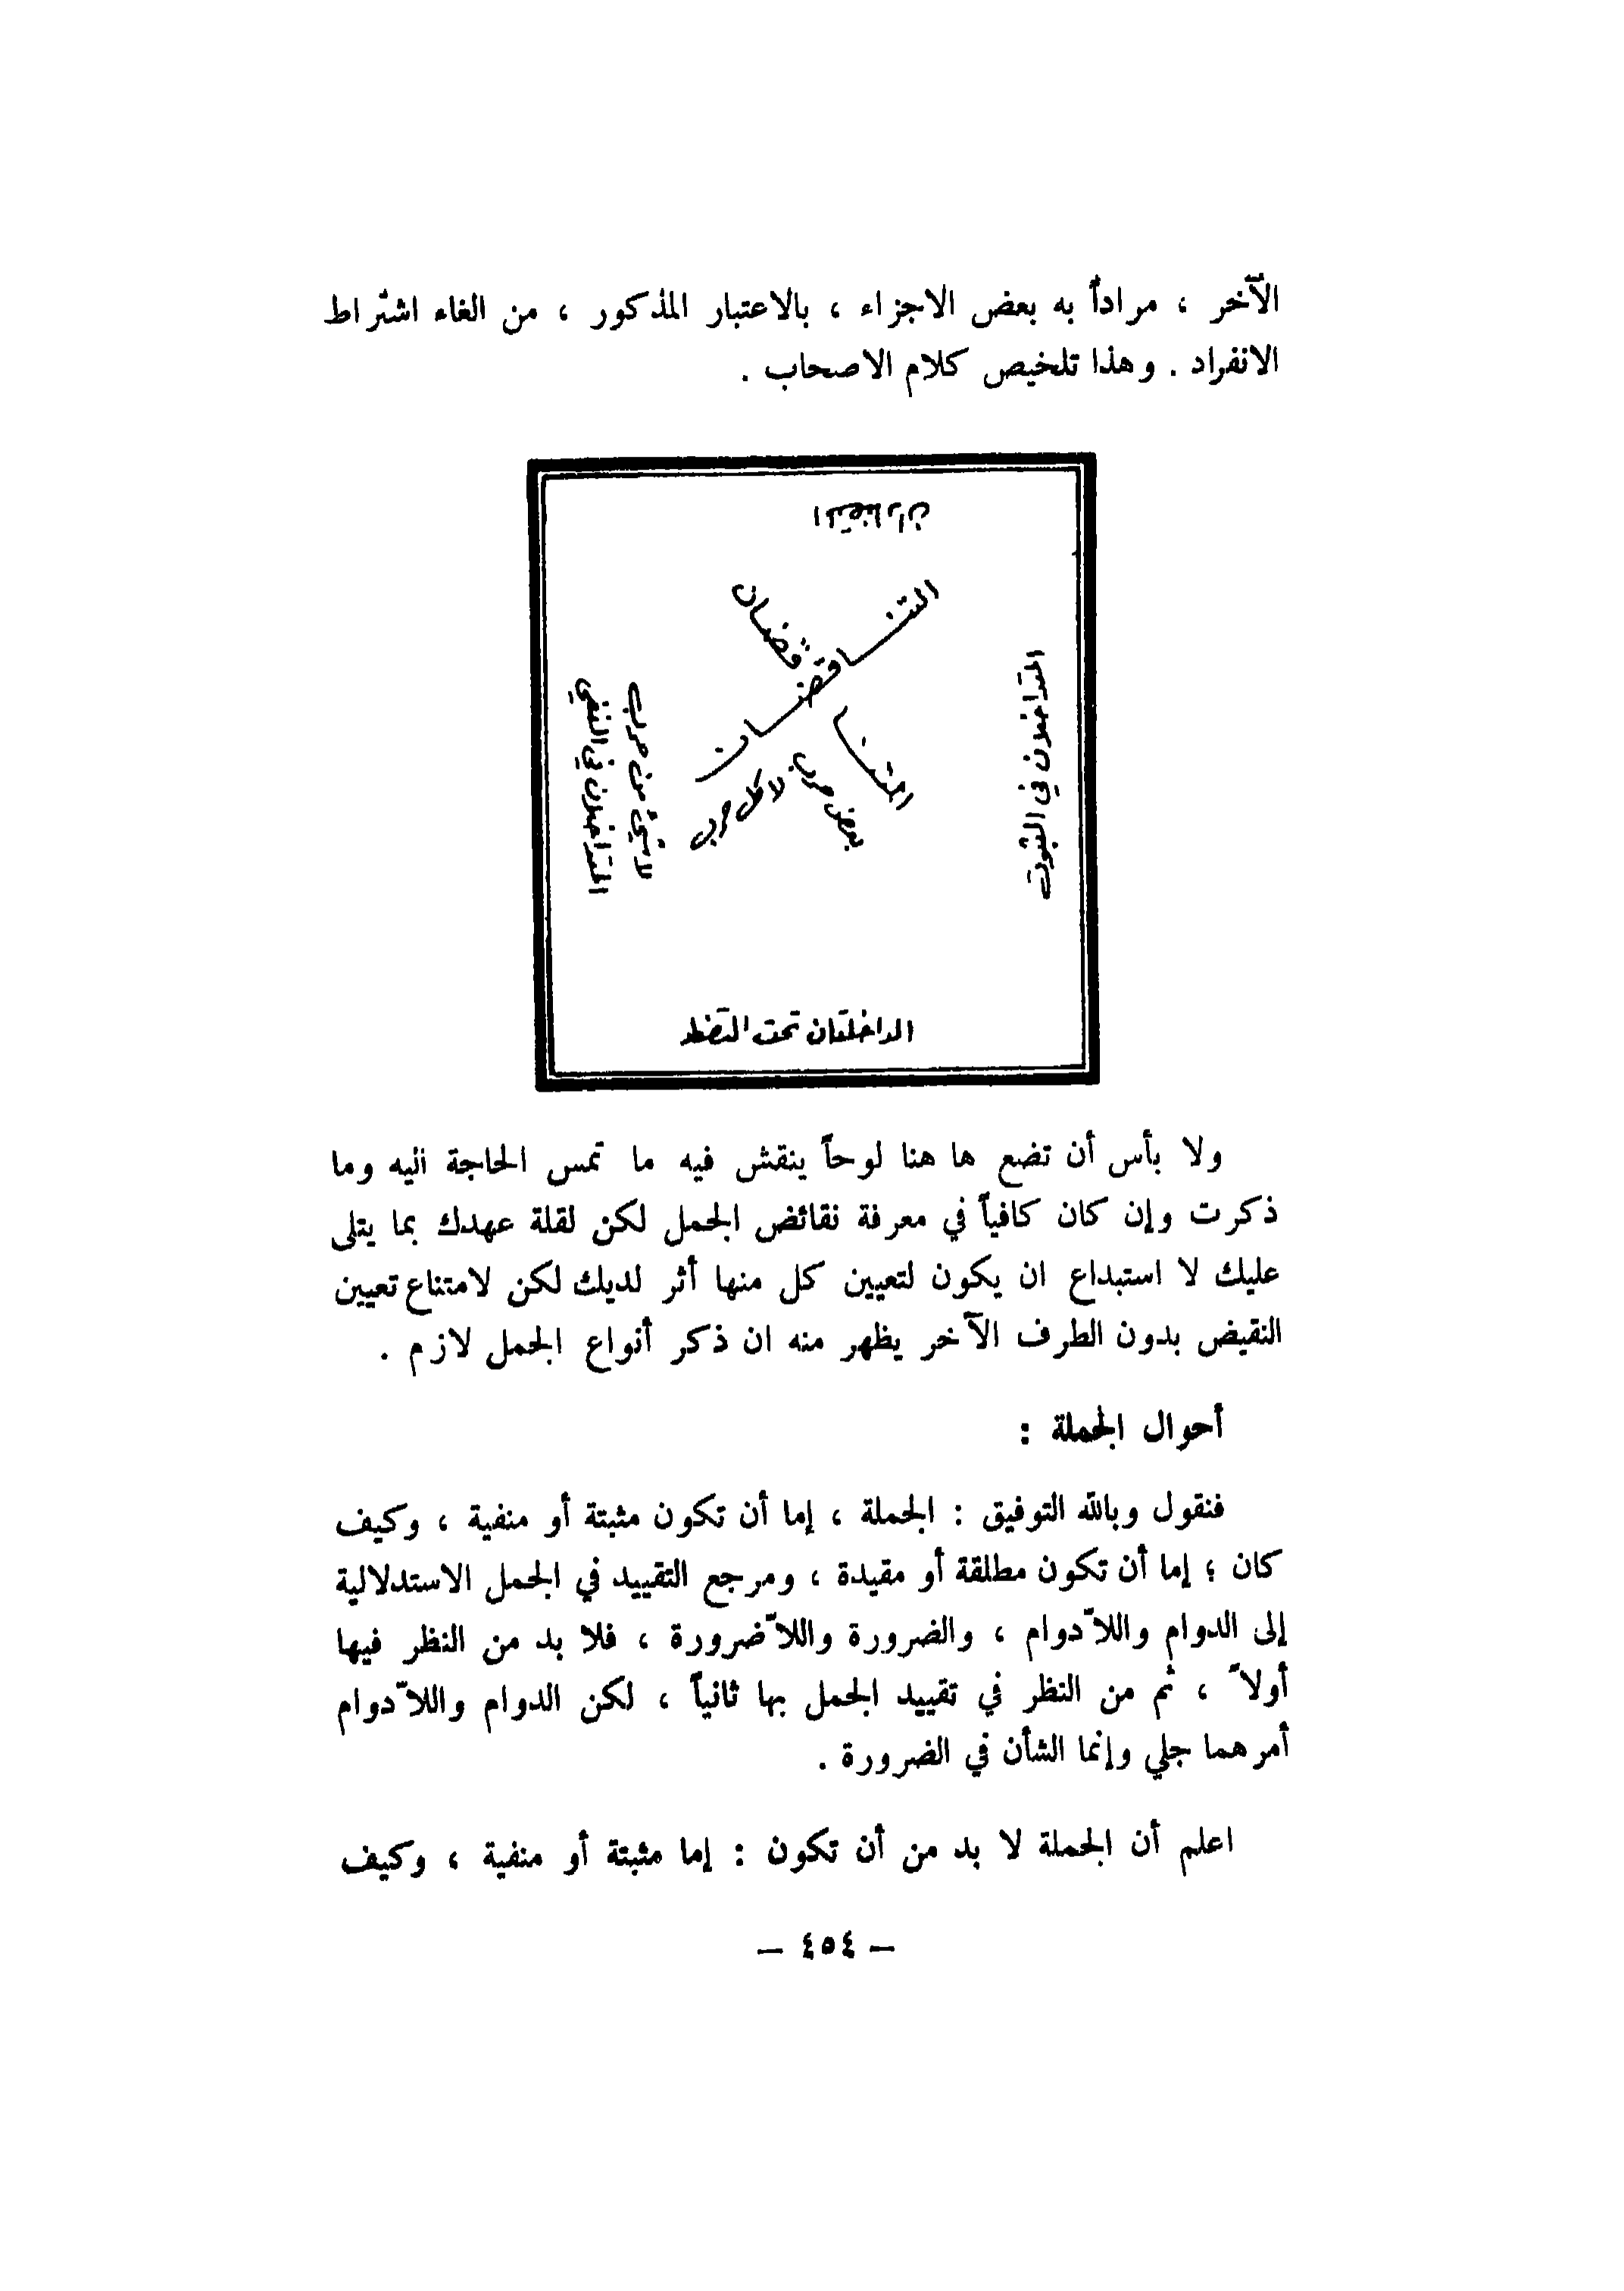 الآخر ، مراداً به بعض الاجزاء ، بالاعتبار المذكور ، من الغاء اشتراط
الانفراد . وهذا تلخيص كلام الاصحاب .
المتضادان
المتناقضان
المتناقضان
المتداخلان في الثبوت
بعض حرب
لا كل حرب
لا شيء من حرب
المتداخلان في النفي
الداخلتان تحت التضاد
ولا بأس أن تضع ها هنا لوحاً ينقش فيه ما تمس الحاجة اليه وما
ذكرت وإن كان كافياً في معرفة نقائض الجمل لكن لقلة عهدك بما يتلى
عليك لا استبداع ان يكون لتعيين كل منها أثر لديك لكن لامتناع تعيين
النقيض بدون الطرف الآخر يظهر منه ان ذكر أنواع الجمل لازم .
أحوال الجملة :
فنقول وبالله التوفيق : الجملة ، إما أن تكون مثبتة أو منفية ، وكيف
كان ؛ إما أن تكون مطلقة أو مقيدة ، ومرجع التقييد في الجمل الاستدلالية
إلى الدوام واللاّدوام ، والضرورة واللاّضرورة ، فلا بد من النظر فيها
أولاً ، ثم من النظر في تقييد الجمل بها ثانياً ، لكن الدوام واللاّدوام
أمرهما جلي وإنما الشأن في الضرورة .
اعلم أن الجملة لا بد من أن تكون : إما مثبتة أو منفية ، وكيف
– ٤٥٤ –